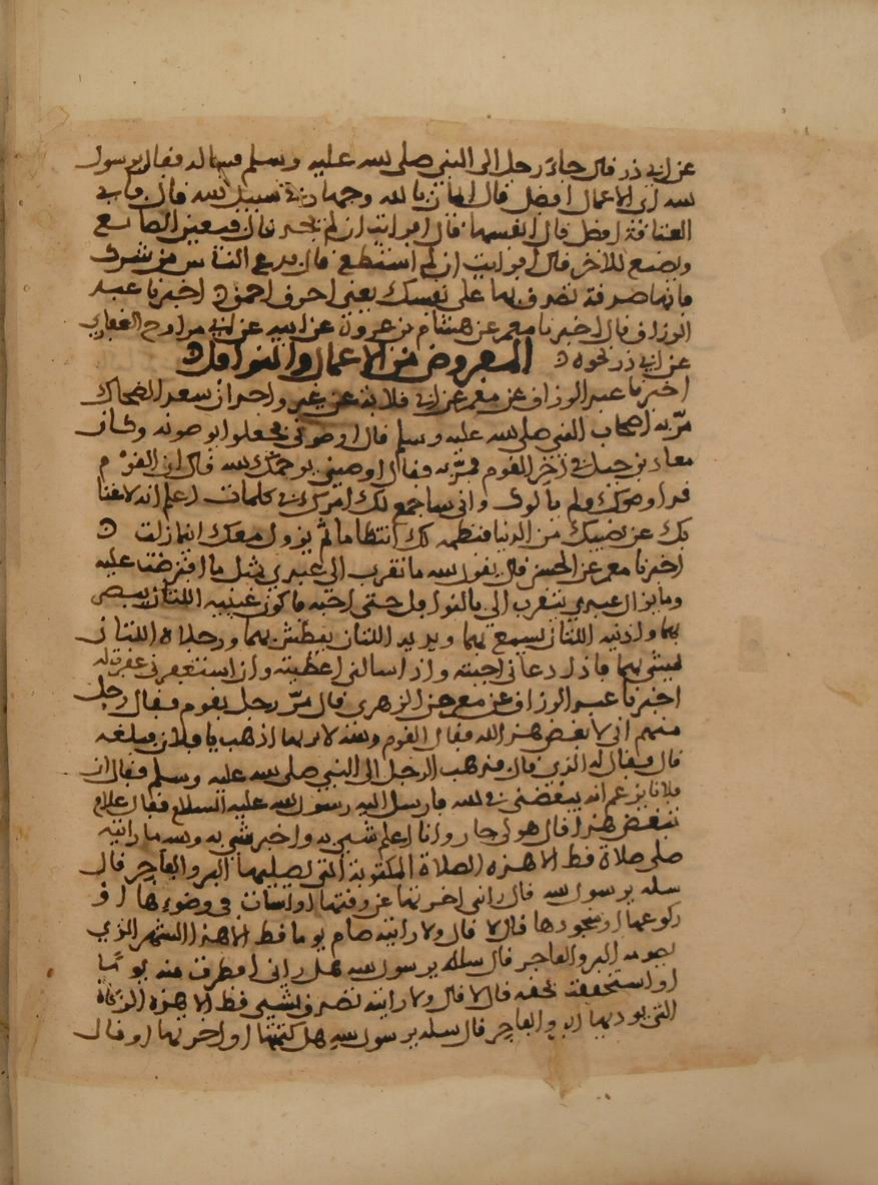 عن ابي ذر قال جاء رجل الى النبي صلى الله عليه وسلم فساله فقال يرسول
الله اي الاعمال افضل قال ايمان بالله وجهاد في سبيل الله قال فاي
العتاقة افضل قال انفسها قال افرايت ان لم نجد قال فتعين الصانع
وتصنع للاخرق قال افرايت ان لم استطع قال تدع الناس من شرك
فانها صدقة تصدق بها على نفسك يعني اخرق احمق اخبرنا عبد
الرزاق قال اخبرنا معمر عن هشام بن عروة عن ابيه عن ابي مراوح الغفاري
عن ابي ذر نحوه المفروض من الاعمال والنوافل
اخبرنا عبد الرزاق عن معمر عن ابي قلابة عن غير واحد ان سعد الضحاك
مر به اصحاب النبي صلى الله عليه وسلم قال اوصوني فجعلوا يوصونه وكان
معاذ بن جبل في اخر القوم فمر به فقال اوصني يرحمك الله قال ان القوم
قد اوصوك ولم يالوك واني ساجمع لك امرك في كلمات اعلم انه لا غنا
بك عن نصيبك من الدنيا فتنظمه لك انتظاما ثم يزول معك اينما زلت
اخبرنا معمر عن الحسن قال يقول الله ما تقرب الي عبدي بمثل ما افترضت عليه
وما يزال عبدي يتقرب الي بالنوافل حتى احبه فاكون عينيه اللتان يبصر
بهما واذنيه اللتان يسمع بهما ويديه اللتان يبطش بهما ورجلاه اللتان
يمشي بهما فاذا دعاني اجبته واذا سالني اعطيته وان استغفرني غفرت له
اخبرنا عبد الرزاق عن معمر عن الزهري قال مر رجل بقوم فقال رجل
منهم اني لابغض هذا لله فقال القوم والله لا بد بما اذهب يا فلان فبلغه
قال فقال له الذي قال فذهب الرجل الى النبي صلى الله عليه وسلم فقال ان
فلانا يزعم انه يبغضني في الله فارسل اليه رسول الله عليه السلام فقال علام
تبغض هذا قال هو لي جار وانا اعلم شي به واخبر شي به والله ما رايته
صلى صلاة قط الا هذه الصلاة المكتوبة التي يصليها البر والفاجر قال
سله يرسول الله قال راني اخرتها عن وقتها او اسات في وضوءها او
ركوعها او سجودها قال لا قال ولا رايته صام يوما قط الا هذا الشهر الذي
يصومه البر والفاجر قال سله يرسول الله هل راني افطرت منه يوما
او استخففت بحقه قال لا قال ولا رايته تصدق بشي قط الا هذه الزكاة
التي يوديها البر والفاجر قال سله يرسول الله هل كتمتها او اخرتها او قال